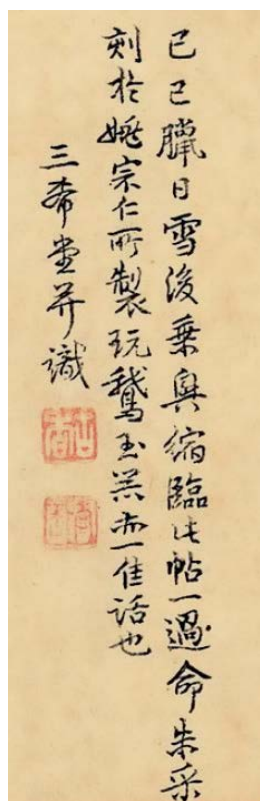 己巳臘日雪後乗興縮臨此帖一過命朱采
刻於姚宗仁所製玩鵞玉器亦一佳話也
三希堂并識